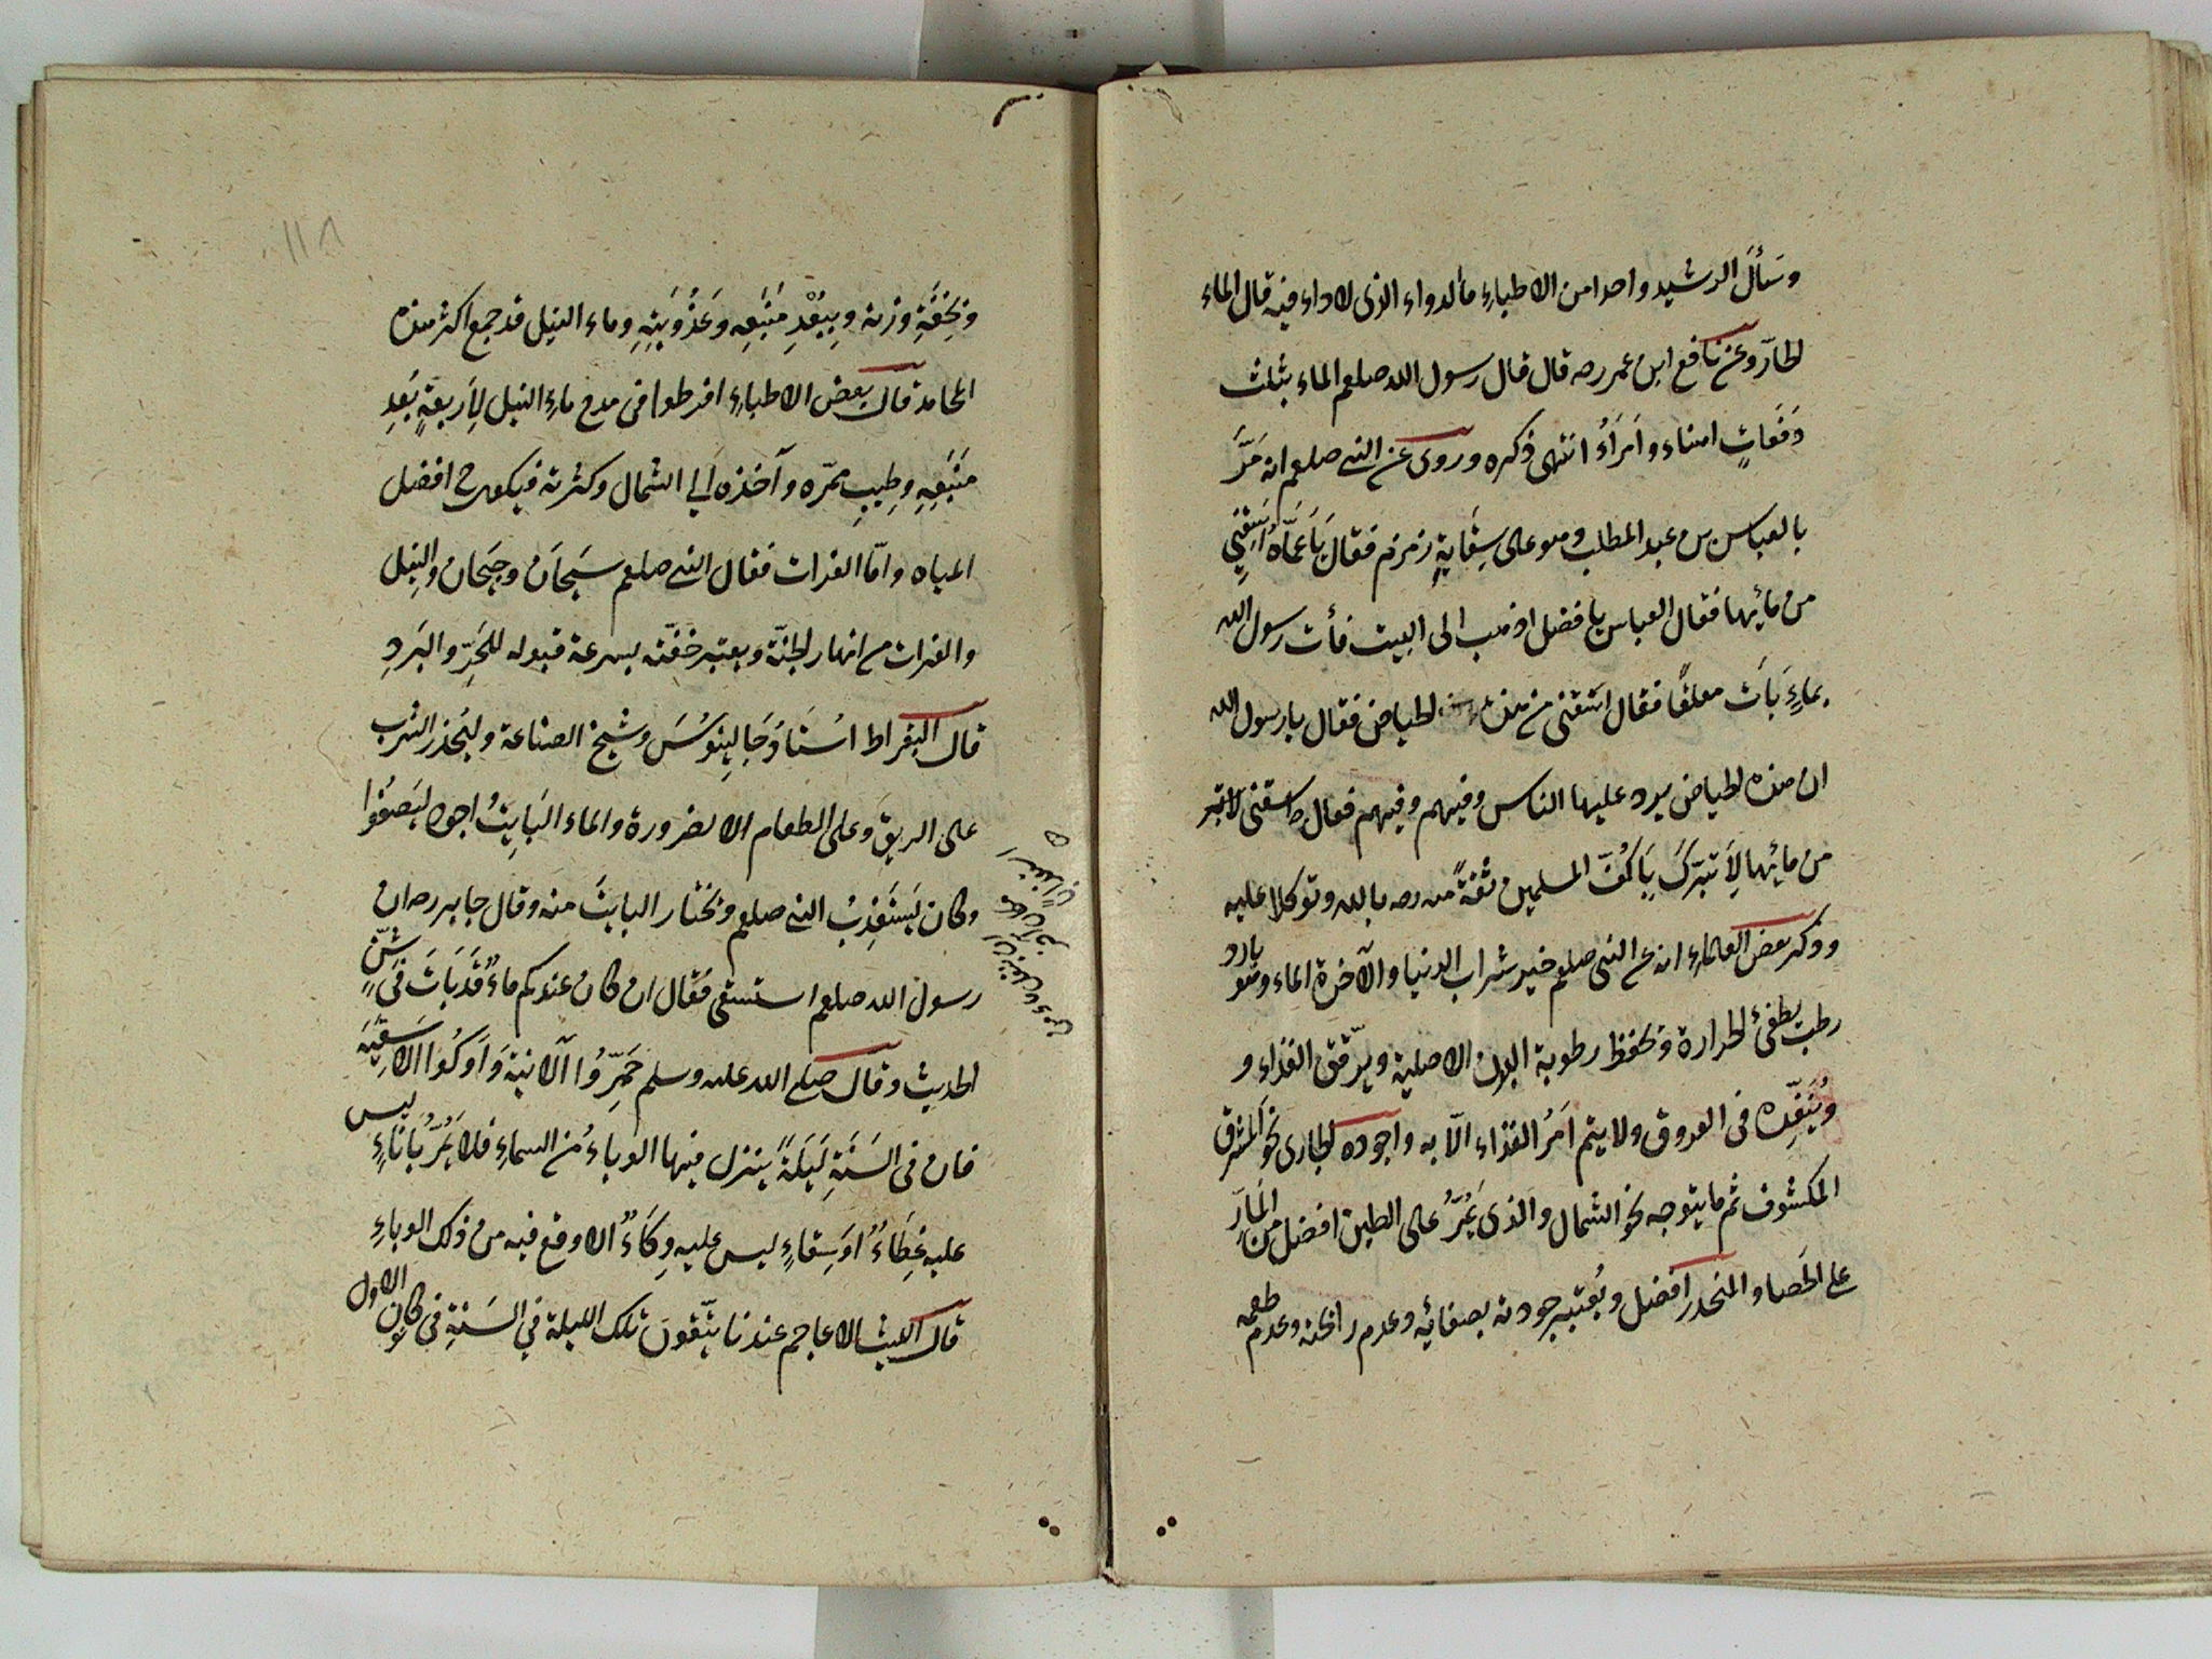 وسَأَلَ الرشيد واحدا من الاطباءِ ما الدواء الذى لا داء فيه قال الماء
الحارّ وعن نافع ابن عمر رصه قال قال رسول الله صلعم الماء بثلث
دَفَعاتٍ امناء وأَمْرَأُ انتهى ذكره وروى عن النبى صلعم انه مَرَّ
بالعباس بن عبد المطلب وهو على سِقايةِ زمزم فقال يَا عَمَّاهُ اَسْقِنِي
من مائِها فقال العباس يا فضل اذهب الى البيت فأت رسول الله
بماءٍ بَاتَ معلقًا فقال اسقنى من هذه الحياض فقال يا رسول الله
ان هذه الحياض يرد عليها الناس وفيهم وفيهم فقال اسقنى لا تبر
من مائها لِأَتَبَرَّكَ بِأَكُفِّ المسلمين ثقةً منه رصه بالله وتوكلا عليه
وذكر بعض العلماءِ انه عن النبى صلعم خير شراب الدنيا والآخرة الماء وهو بارد
رطب يطفئ الحرارة ويحفظ رطوبة البدن الاصلية ويرقّق الغذاء و
ويُنَفِّذه فى العروق ولا يتم اَمْرُ الغذاء الّا به واجوده الجارى نحو المشرق
المكشوف ثم ما يتوجه نحو الشمال والذى يَمُرُّ على الطين افضل من المارّ
على الحَصا والمنحدر افضل ويُعتبر جودته بصفائِه وعدم رائحته وعدم طعمه
١١٨
وبخِفَّةِ وزنه وبِبُعْدِ مَنْبَعِه وعَذُوبَتِهِ وماء النيل قد جمع اكثر هذه
المحامد قال بعض الاطباءِ افرطوا فى مدح ماءِ النيل لِأَربعةٍ بُعدِ
مَنْبَعِهِ وطِيبِ ممَرّه وأخذه الى الشمال وكثرته فيكون ح افضل
المياه وامّا الفرات فقال النبى صلعم سَيحان وجَيحان والنيل
والفرات من انهار الجنّة ويعتبر خفّته بسرعة قبوله للحَرِّ والبَردِ
قال البقراط اُستاذُ جَالِينُوسَ وشيخ الصناعة وليُحذر الشرب
على الريق وعلى الطعام الا لضرورة والماء البَايِتُ اجود ليَصفُوا
وكان يَستَعْذِبُ النبى صلعم ويختار البايتَ منه وقال جابر رصه ان
رسول الله صلعم استسقى فقال ان كان عندكم ماءٌ قد بَاتَ فى شنٍّ
الحديث وقال صلى الله عليه وسلم خَمِّرُوا الآنية وَأَوكُوا الاَسْقِيَه
فان فى السَنَةِ لَيلَةً ينزل فيها الوباءُ من السماءِ فلا يَمُرُّ بِاِناءٍ ليس
عليه غِطَاءٌ اَو سِقاءٍ ليس عليه وِكَاءٌ الا وقع فيه من ذلك الوباءِ
قال الليث الاعاجم عندنا يتّقون تلك الليلة في السَنةِ فى كانون الاول